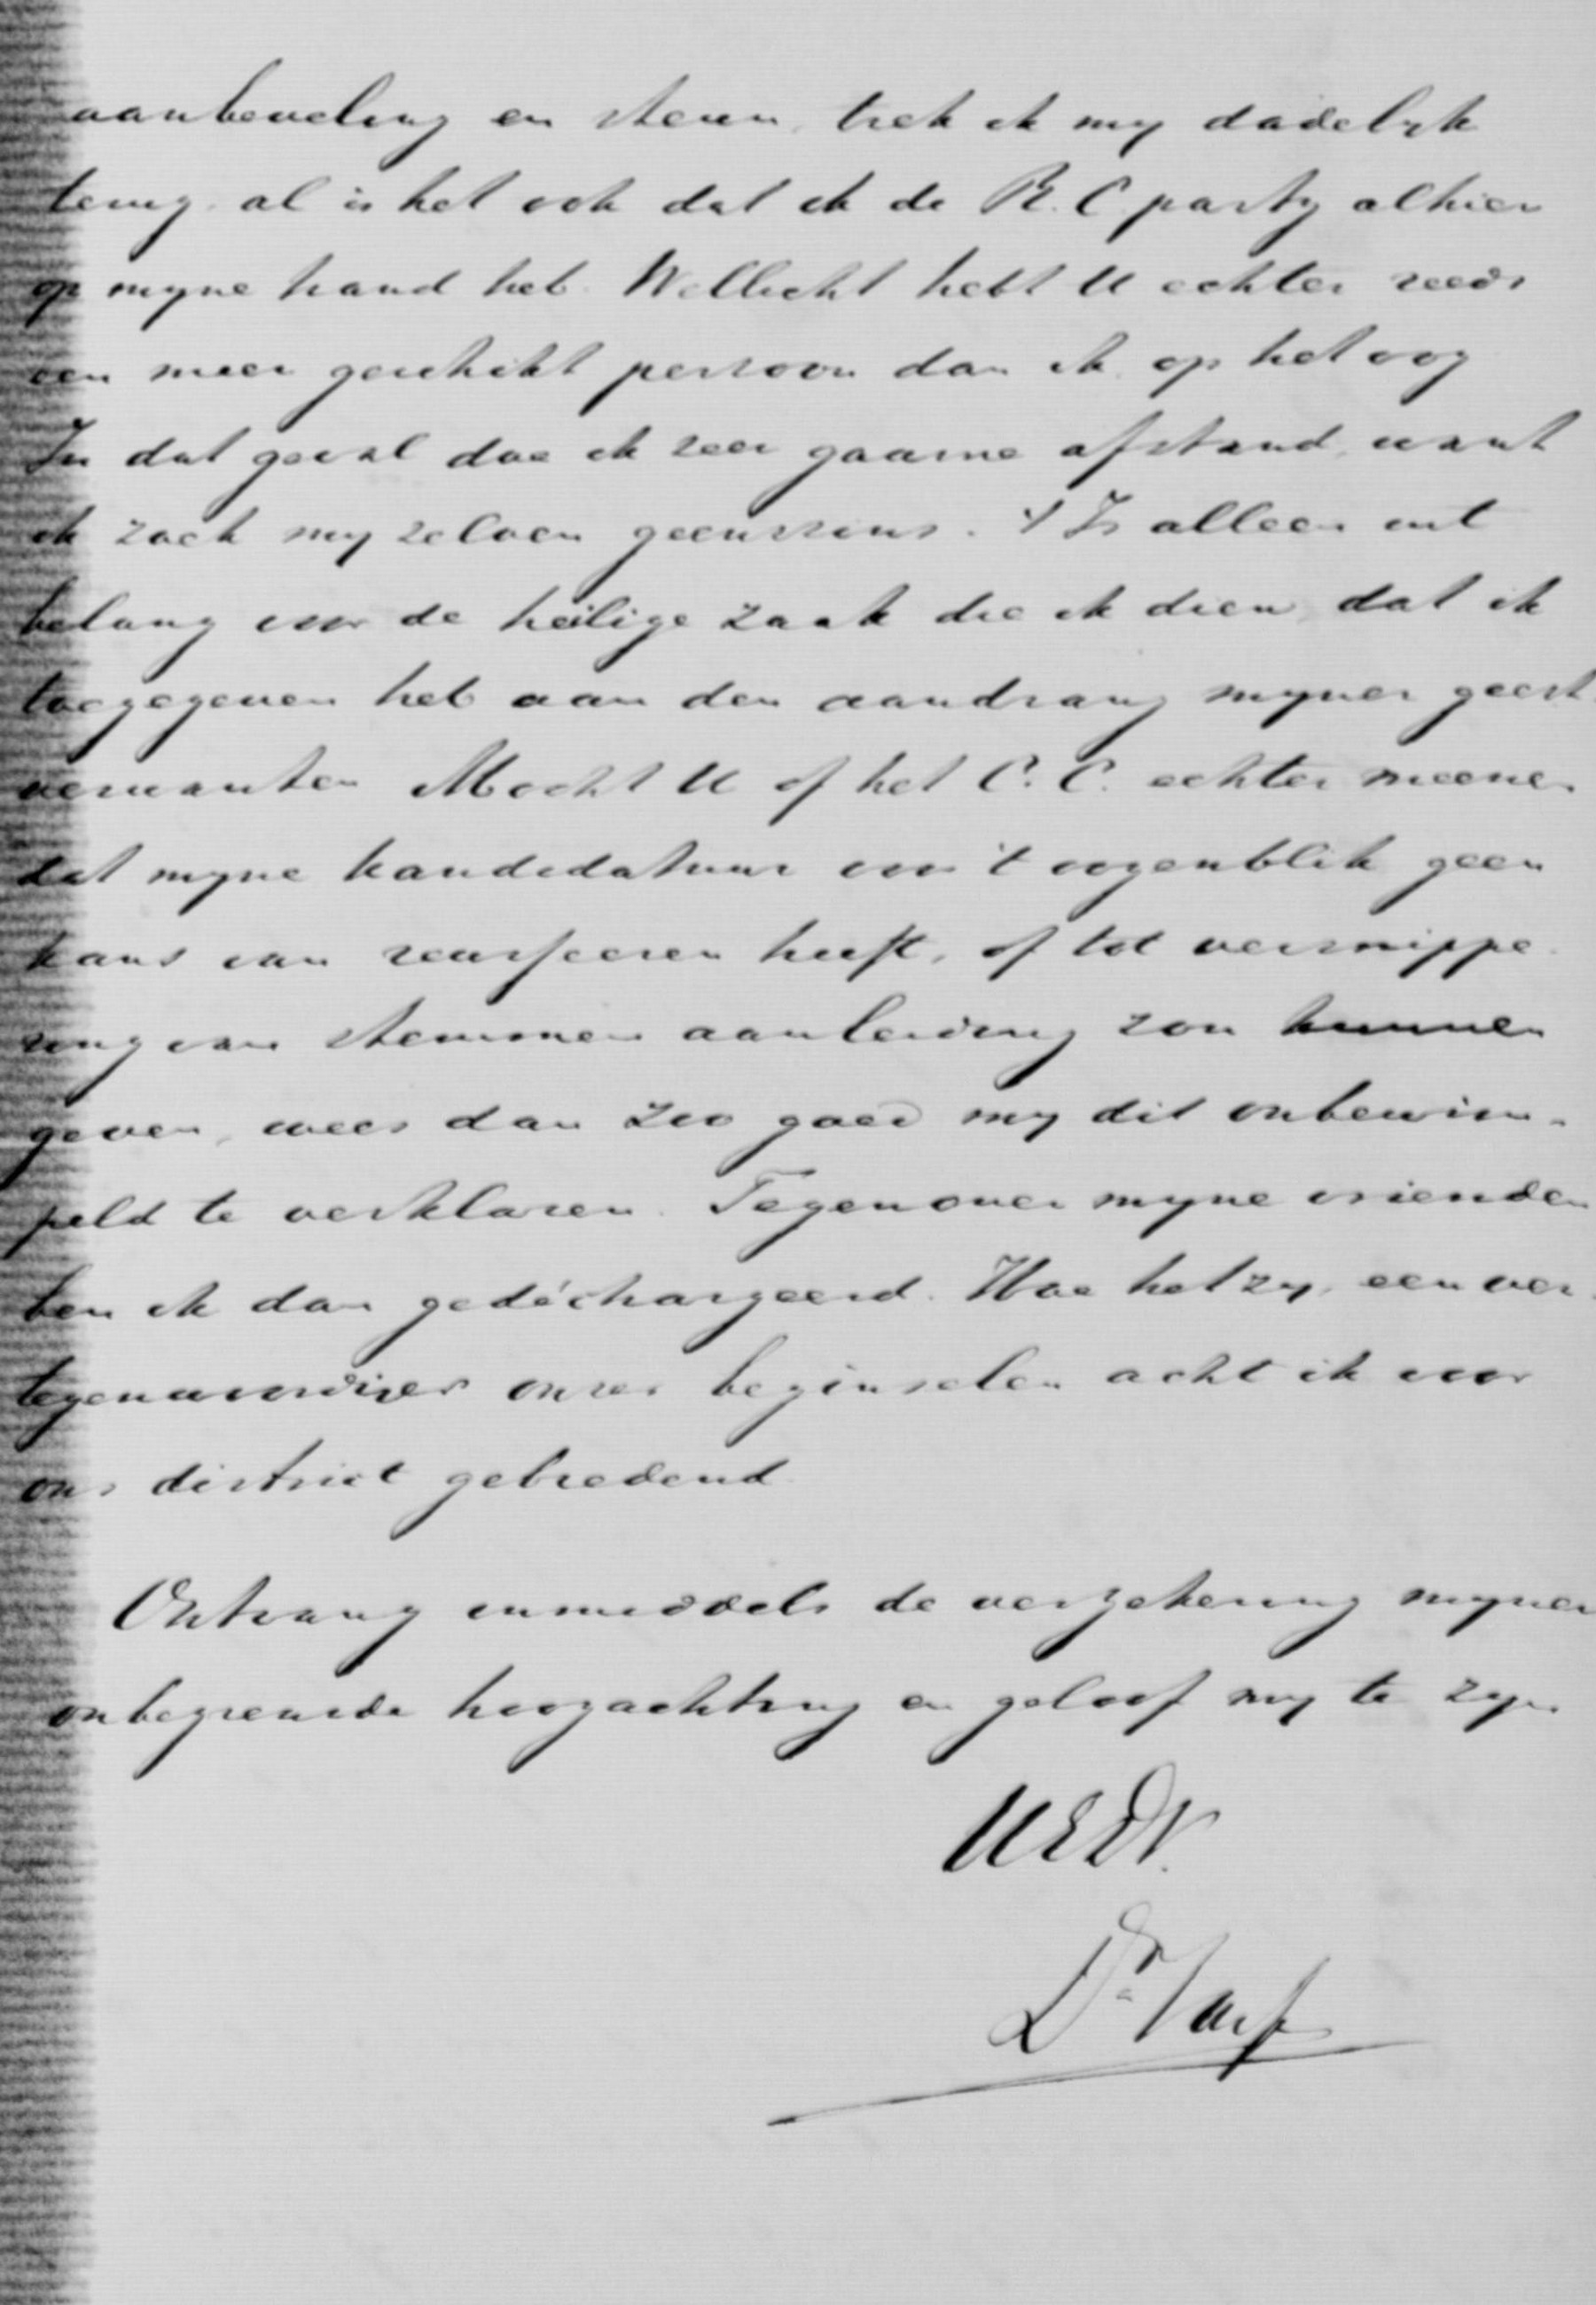 aanbeveling en steun, trek ik my dadelyk
terug, al is het ook dat ik de R.C. party alhier
op myne hand heb. Wellicht hebt U echter reeds
een meer geschikt persoon dan ik op het oog
In dat geval doe ik zeer gaarne afstand, want
ik zoek my zelven geenszins. 't Is alleen uit
belang voor de heilige zaak die ik dien, dat ik
toegegeven heb aan den aandrang myner geest
verwanten Mocht U of het C.C. echter meenen
dat myne kandidatuur voor 't oogenblik geen
kans van reusseeren heeft, of tot versnippe
ring van stemmen aanleiding zou kunnen
geven, wees dan zoo goed my dit onbewim-
peld te verklaren. Tegenover myne vrienden
ben ik dan gedéchargeerd. Hoe het zy, een ver
tegenwoordiger onzer beginselen acht ik voor
ons district gebiedend
Ontvang inmiddels de verzekering myner
onbegrensde hoogachting en geloof my te zyn
UEDr.
Dr